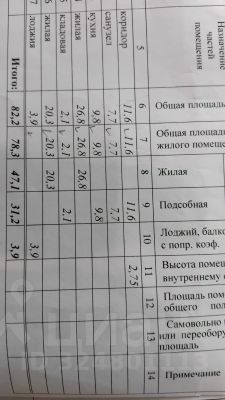 Назначение
частей
помещения
5
коридор
санузел
кухня
жилая
кладовая
жилая
лоджия
Итого:
Общая площадь
6
11,6
7,7
9,8
26,8
2,1
20,3
3,9
82,2
Общая площадь
жилого помеще
7
11,6
7,7
9,8
26,8
2,1
20,3
78,3
Жилая
8
26,8
20,3
47,1
Подсобная
9
11,6
7,7
9,8
2,1
31,2
Лоджий, балко
с попр. коэф.
10
3,9
3,9
Высота помещ
внутреннему о
11
2,75
Площадь пом
общего пол
12
Самовольно
или переобору
площадь
13
Примечание
14